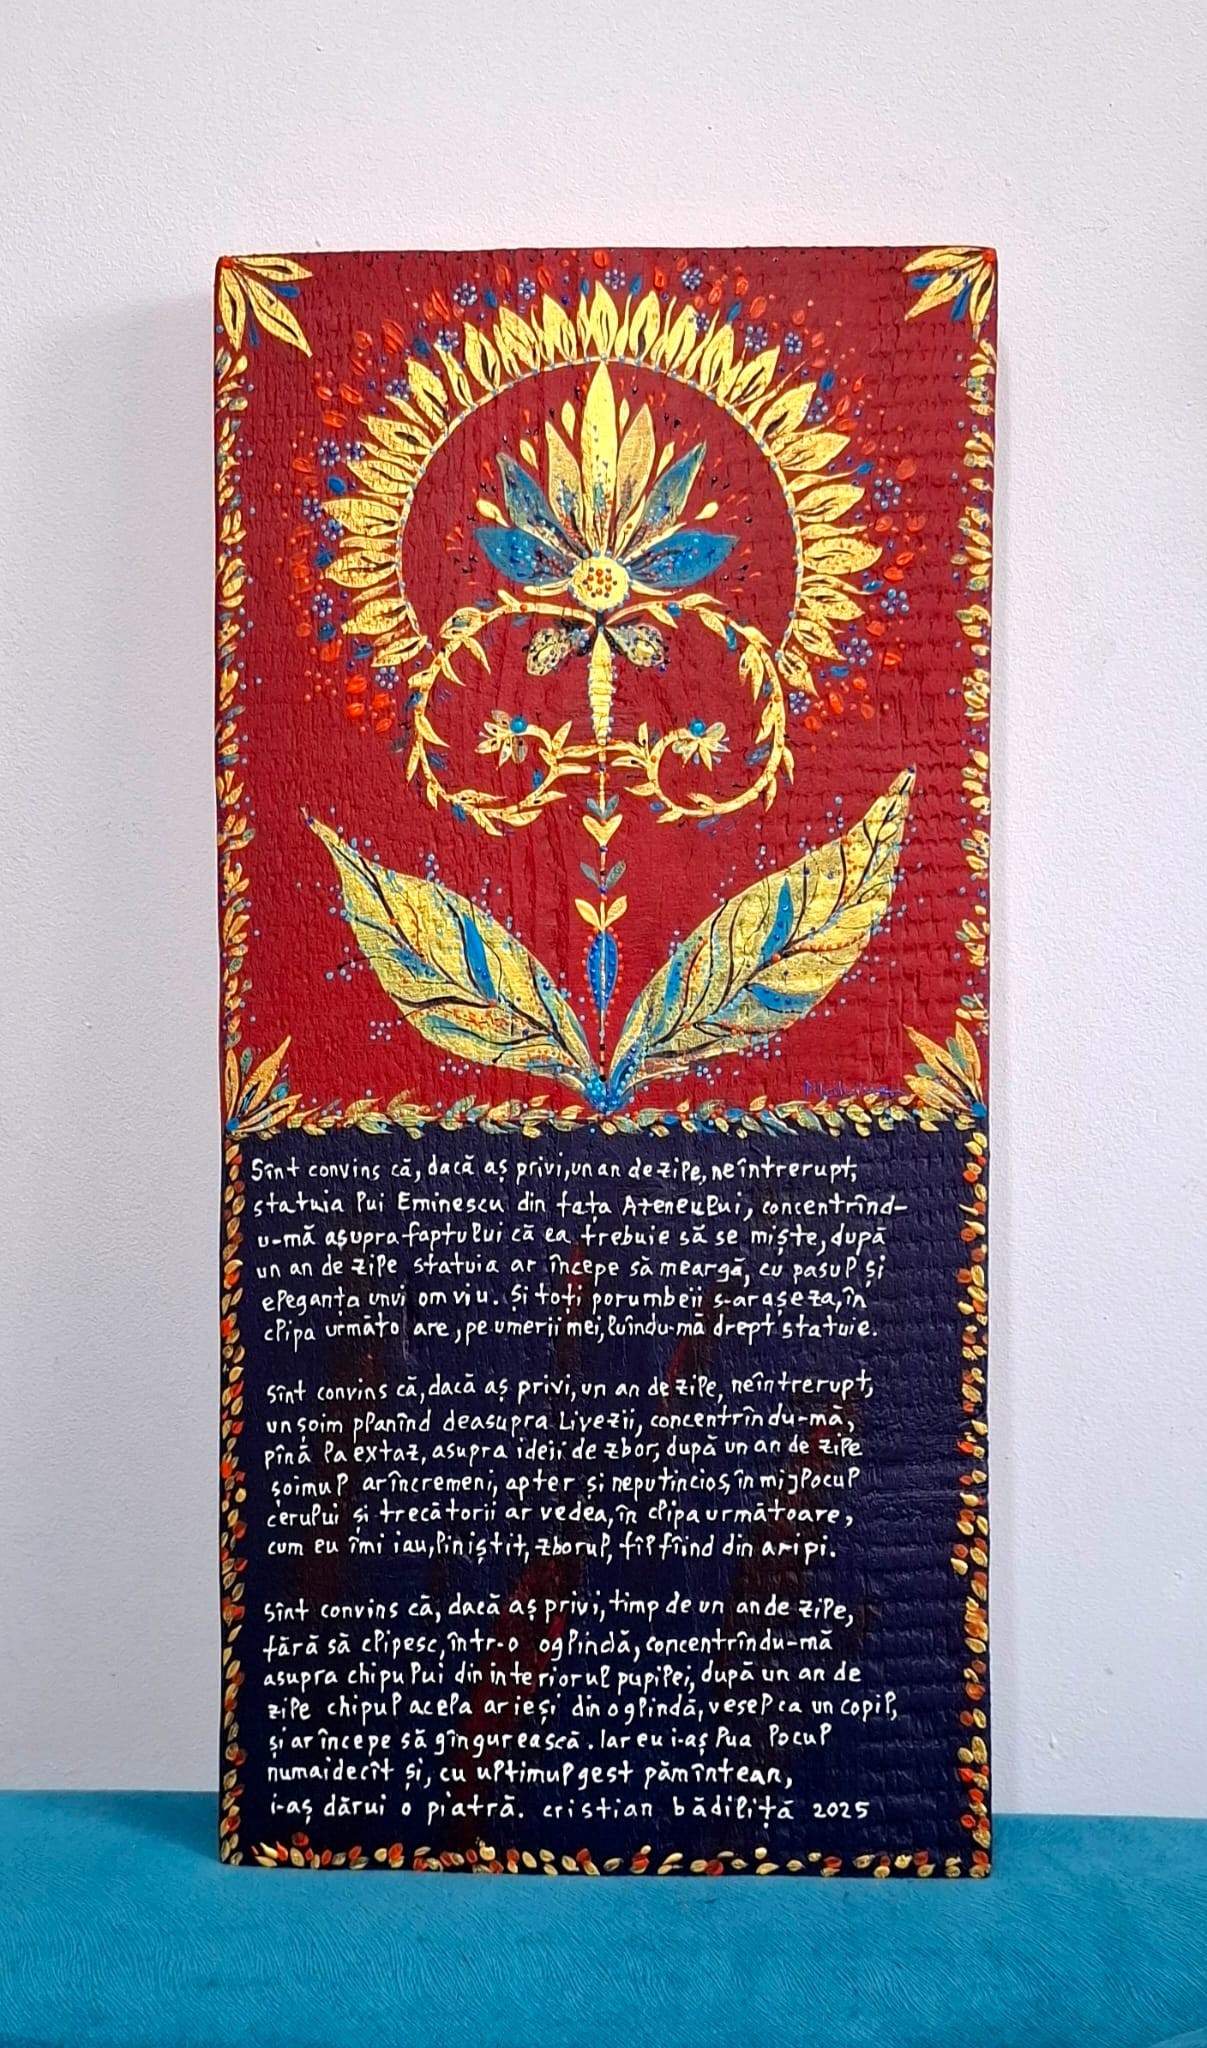 Sînt convins că, dacă aș privi, un an de zile, neîntrerupt,
statuia lui Eminescu din fața Ateneului, concentrînd-
u-mă asupra faptului că ea trebuie să se miște, după
un an de zile statuia ar începe să meargă, cu pasul și
eleganța unui om viu. Și toți porumbeii s-ar așeza, în
clipa următo are, pe umerii mei, luîndu-mă drept statuie.
Sînt convins că, dacă aș privi, un an de zile, neîntrerupt,
un șoim planînd deasupra Livezii, concentrîndu-mă,
pînă la extaz, asupra ideii de zbor, după un an de zile
șoimul ar încremeni, apter și neputincios, în mijlocul
cerului și trecătorii ar vedea, în clipa următoare,
cum eu îmi iau, liniștit, zborul, fîlfîind din aripi.
Sînt convins că, dacă aș privi, timp de un an de zile,
fără să clipesc, într-o oglindă, concentrîndu-mă
asupra chipului din interiorul pupilei, după un an de
zile chipul acela ar ieși din oglindă, vesel ca un copil,
și ar începe să gîngurească. Iar eu i-aș lua locul
numaidecît și, cu ultimul gest pămîntean,
i-aș dărui o piatră. cristian bădiliță 2025